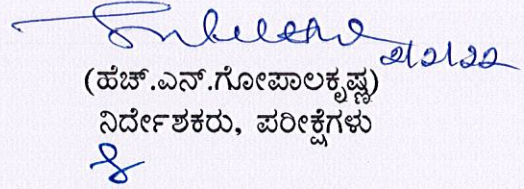 2/2/22
(ಹೆಚ್.ಎನ್.ಗೋಪಾಲಕೃಷ್ಣ)
ನಿರ್ದೇಶಕರು, ಪರೀಕ್ಷೆಗಳು